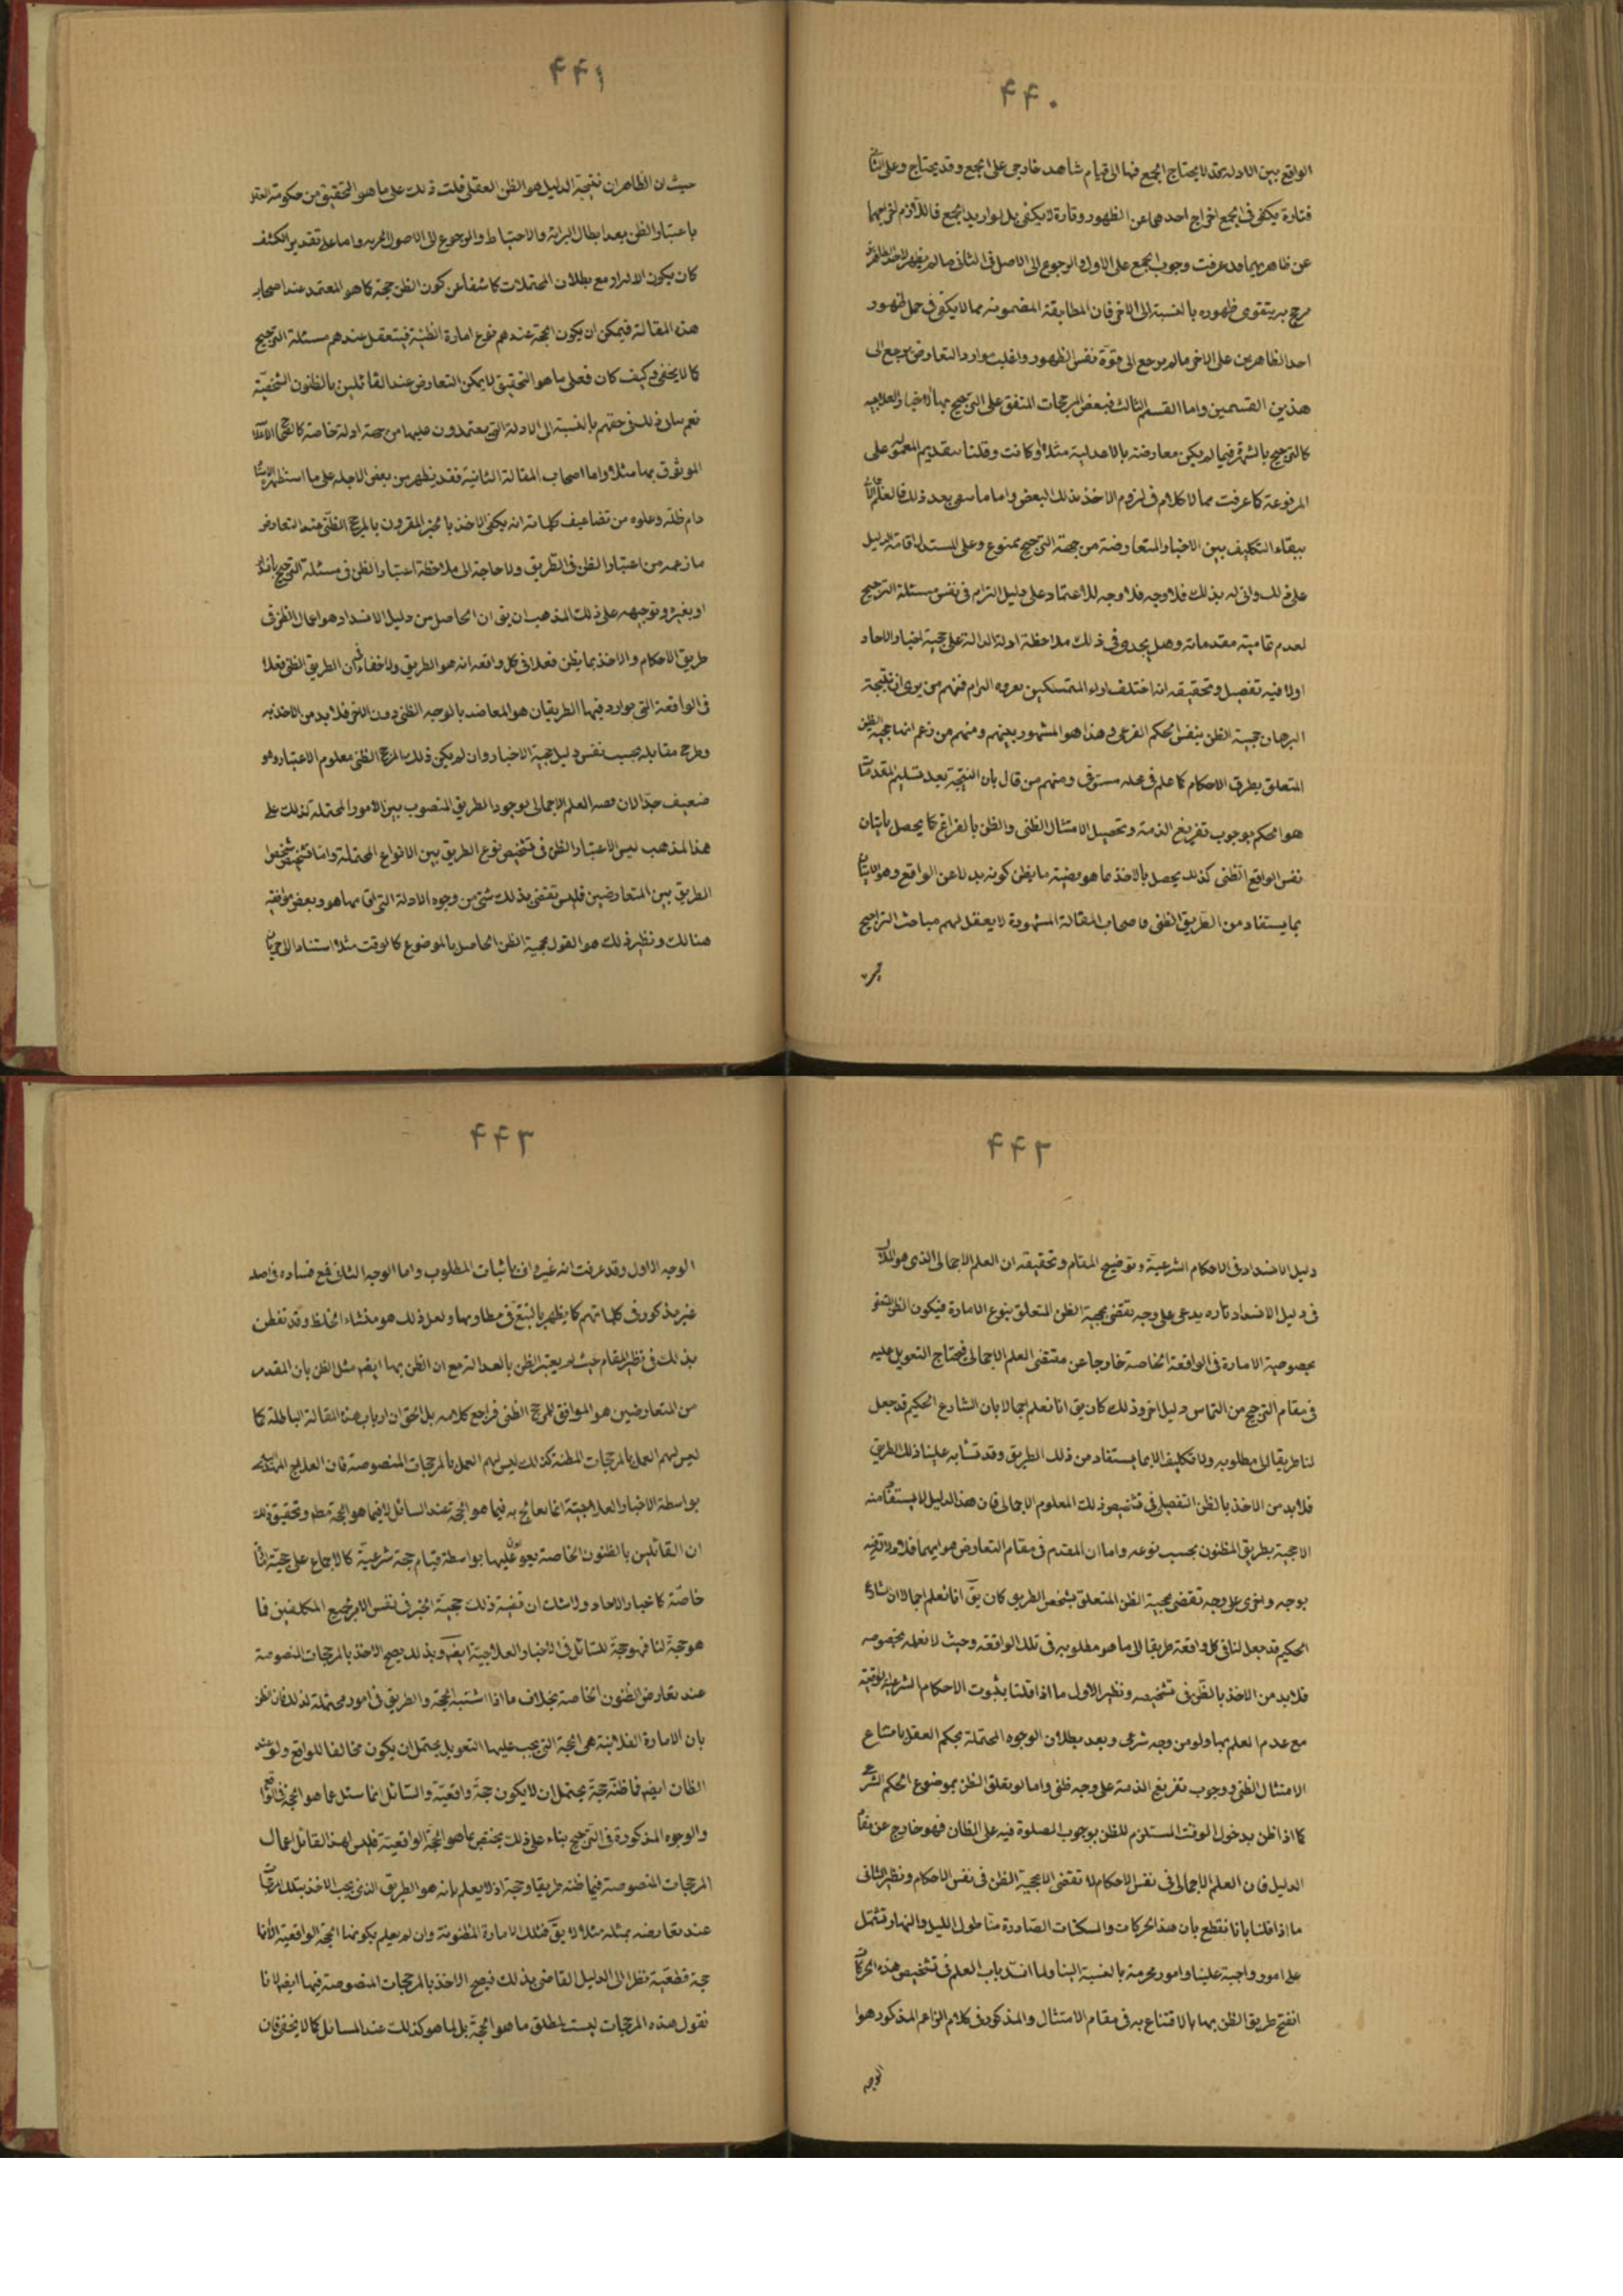 ۴۴۰
الواقع بين الادلة قد لا يحتاج الجمع فيها الى قيام شاهد خارجى على الجمع وقد يحتاج وعلى الثانى
فتارة يكفى فى الجمع اخراج احدهما عن الظهور وتارة لا يكفى بل لو اريد الجمع فاللازم اخراجهما
عن ظاهريهما قد عرفت وجوب الجمع على الاول والرجوع الى الاصل فى الثانى ما لم يظهر لاحد الظاهرين
مرجح به يتقوى ظهوره بالنسبة الى الاخر فان المطابقة المضمونية مما لا يكفى فى حمل ظهور
احد الظاهرين على الاخر ما لم يرجع الى قوة نفس الظهور واغلب موارد التعارض يرجع الى
هذين القسمين واما القسم الثالث فبعض المرجحات المتفق على الترجيح بها الاخبار العلاجيه
كالترجيح بالشهرة فيما لم يكن معارضة بالاعدلية مثلا او كانت وقلنا بتقديم المعمول على
المرفوعة كما عرفت مما لا كلام فى لزوم الاخذ بذلك البعض واما ما سوى بعد ذلك فالعلم
ببقاء التكليف بين الاخبار المتعارضة من جهة الترجيح ممنوع وعلى المستدل اقامة الدليل
على ذلك وانى له بذلك فلا وجه فلا وجه للاعتماد على دليل الزام فى نفس مسئلة الترجيح
لعدم تمامية مقدماته وهل يجدى فى ذلك ملاحظة ادلة الدالة على حجية اخبار الاحاد
اولا فيه تفصيل وتحقيقه انه اختلف اراء المتمسكين بعروه الزام فمنهم من يرى ان نتيجة
البرهان حجية الظن بنفس الحكم الفرعى وهذا هو المشهور بينهم ومنهم من زعم انها حجية الظن
المتعلق بطرق الاحكام كما علم فى محله مستوفى ومنهم من قال بان النتيجة بعد تسليم المقدمات
هو الحكم بوجوب تفريغ الذمة وتحصيل الامتثال الظنى والظن بالفراغ كما يحصل باتيان
نفس الواقع الظنى كذلك يحصل بالاخذ بما هو قضية ما يظن كونه بدلا عن الواقع وهو الاتيان
بما يستفاد من الطريق الظنى فاصحاب المقالة المشهورة لا يعقل لهم مباحث التراجيح
۴۴۱
حيث ان الظاهر ان نتيجة الدليل هو الظن العقلى قلت ذلك على ما هو التحقيق من حكومة العقل
باعتبار الظن بعد ابطال البرائة والاحتياط والرجوع الى الاصول واما على تقدير الكشف
كان يكون الانسداد مع بطلان المحتملات كاشفا عن كون الظن حجة كما هو المعتمد عند اصحاب
هذه المقالة فيمكن ان يكون الحجة عندهم نوع امارة الظنية فيتعقل عندهم مسئلة الترجيح
كما لا يخفى وكيف كان فعلى ما هو التحقيق لا يمكن التعارض عند القائلين بالظنون الشخصية
نعم بيان ذلك فى حقهم بالنسبة الى الادلة التى يعتمدون عليها من جهة ادلة خاصة
الموثوق بها مثلا واما اصحاب المقالة الثانية فقد يظهر من بعض الاجله على ما استظهر الاستاد
دام ظله وعلوه من تضاعيف كلماته انه يكفى الاخذ بالخبر المقرون بالمرجح الظنى عند التعارض
ما زعمه من اعتبار الظن فى الطريق ولا حاجة الى ملاحظة اعتبار الظن فى مسئلة الترجيح بانسداد
او بغيره وتوجيهه على ذلك المذهب ان يق ان الحاصل من دليل الانسداد هو اعمال الظن فى
طريق الاحكام والاخذ بما يظن فعلا فى كل واقعة انه هو الطريق ولا خفاء فى ان الطريق الظنى فعلا
فى الواقعة التى يوارد فيها الطريقان هو المعاضد بالوجه الظنى دون الاخر فلا بد من الاخذ به
وطرح مقابله بحسب نفس دليل حجية الاخبار وان لم يكن ذلك المرجح الظنى معلوم الاعتبار وهو
ضعيف جدا لان قصه العلم الاجمالى بوجود الطريق المنصوب بين الامور المحتملة لذلك على
هذا المذهب ليس الا اعتبار الظن فى تشخيص نوع الطريق بين الانواع المحتملة واما تشخيص شخص
الطريق بين المتعارضين فليس تقضى بذلك شئ من وجوه الادلة التى اقامها هو وبعض موافقيه
هنالك ونظير ذلك هو القول بحجية الظن الحاصل بالموضوع كالوقت مثلا استنادا الى جريان
۴۴۲
دليل الانسداد فى الاحكام الشرعية وتوضيح المقام وتحقيقه ان العلم الاجمالى الذى هو الملاك
فى دليل الانسداد تارة يدعى على وجه تقضى بحجية الظن المتعلق بنوع الامارة فيكون الظن المتعلق
بخصوصية الامارة فى الواقعة الخاصة خارجا عن مقتضى العلم الاجمالى فيحتاج التعويل عليه
فى مقام الترجيح من التماس دليل اخر وذلك كان يق انا نعلم اجمالا بان الشارع الحكيم قد جعل
لنا طريقا الى مطلوبه ولا تكليف الا بما يستفاد من ذلك الطريق وقد تشابه علينا ذلك الطريق
فلا بد من الاخذ بالظن التفصيلى فى تشخيص ذلك المعلوم الاجمالى فان هذا الدليل لا يستفاد منه
الا حجية طريق المظنون بحسب نوعه واما ان المقدم فى مقام التعارض هو ايهما فلا دلالة فيه
بوجه واخرى على وجه تقضى بحجية الظن المتعلق بشخص الطريق كان يق انا نعلم اجمالا ان الشارع
الحكيم قد جعل لنا فى كل واقعة طريقا الى ما هو مطلوبه فى تلك الواقعة وحيث لا نعلمه بخصوصه
فلا بد من الاخذ بالظن فى تشخيصه ونظير الاول ما اذا قلنا بثبوت الاحكام الشرعية الواقعية
مع عدم العلم بها ولو من وجه شرعى وبعد بطلان الوجوه المحتملة يحكم العقل باقتناع
الامتثال الظنى ووجوب تفريغ الذمة على وجه ظنى واما لو تعلق الظن بموضوع الحكم الشرعى
كما اذا ظن بدخول الوقت المستلزم للظن بوجوب الصلوة فيه على الظان فهو خارج عن مفاد
الدليل فان العلم الاجمالى فى نفس الاحكام لا تقضى الا بحجية الظن فى نفس الاحكام ونظير الثانى
ما اذا قلنا بانا نقطع بان هذه الحركات والسكنات الصادرة منا طول الليل والنهار تشتمل
على امور واجبة علينا وامور محرمة بالنسبة الينا ولما انسد باب العلم فى تشخيص هذه الحركات
انفتح طريق الظن بها بالاقتناع به فى مقام الامتثال والمذكور فى كلام الزاعم المذكور هو
الوجه
۴۴۳
الوجه الاول وقد عرفت انه غير واف باثبات المطلوب واما الوجه الثانى فمع فساده فى اصله
غير مذكور فى كلماتهم كما يظهر بالتتبع فى مطاويها ولعل ذلك هو منشاء الخلط وقد تفطن
بذلك فى نظير المقام حيث لم يعتبر الظن بالعدالة مع ان الظن بها ايضا مثل الظن بان المقدم
من المتعارضين هو الموافق للمرجح الظنى فراجع كلامه بل الحق ان ارباب هذه المقالة الباطلة كما
ليس لهم العمل بالمرجحات الظنية كذلك ليس لهم العمل بالمرجحات المنصوصة فان العلاج المستفاد
بواسطة الاخبار العلاجية انما يعالج به فيما هو الحجة عند السائل لا فيما هو الحجة مطلقا وتحقيق ذلك
ان القائلين بالظنون الخاصة يعولون عليها بواسطة قيام حجة شرعية كالاجماع على حجية
خاصة كاخبار الاحاد ولا شك ان قضية ذلك حجية الخبر فى نفس الامر لجميع المكلفين فما
هو حجة لنا فهو حجة للسائل فى الاخبار العلاجية ايضا وبذلك يصح الاخذ بالمرجحات المنصوصة
عند تعارض الظنون الخاصة بخلاف ما اذا اشتبه الحجة والطريق فى امور محتملة لذلك فان الظن
بان الامارة الفلانية هى الحجة التى يجب عليها التعويل يحتمل ان يكون مخالفا للواقع ولو عند
الظان ايضا فما ظنه حجة يحتمل ان لا يكون حجة واقعية والسائل انما سئل عما هو الحجة فى الواقع
والوجوه المذكورة فى الترجيح بناء على ذلك يختص بما هو الحجة الواقعية فليس لهذا القائل اعمال
المرجحات المنصوصة فيما ظنه طريقا وحجة اذ لا يعلم بانه هو الطريق الذى يجب الاخذ بتلك المرجحات
عند تعارضه بمثله مثلا لا يق فتلك الامارة المظنونة وان لم يعلم بكونها الحجة الواقعية الا انها
حجة قطعية نظرا الى الدليل القاضى بذلك فيصح الاخذ بالمرجحات المنصوصة فيها ايضا لانا
نقول هذه المرجحات ليست لمطلق ما هو الحجة بل لما هو كذلك عند السائل كما لا يخفى فان